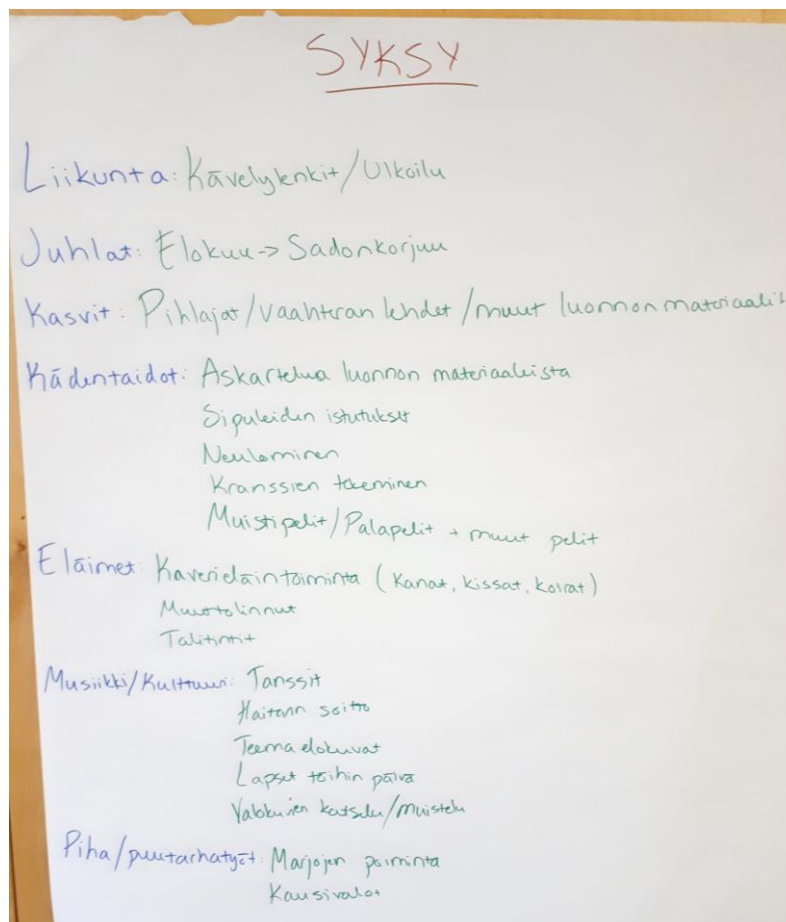 SYKSY
Liikunta: Kävelylenkit/Ulkoilu
Juhlat: Elokuu -> Sadonkorjuu
Kasvit: Pihlajat/vaahteran lehdet/muut luonnon materiaalit
Kädentaidot: Askartelua luonnon materiaaleista
Sipuleiden istutukset
Neulominen
Kranssien tekeminen
Muistipelit/Palapelit + muut pelit
Eläimet: Kaverieläintoiminta (Kanat, kissat, koirat)
Muuttolinnut
Talitintit
Musiikki/Kulttuuri: Tanssit
Haitarin soitto
Teema elokuvat
Lapset töihin päivä
Valokuvien katselu/muistelu
Piha/puutarhatyöt: Marjojen poiminta
Kausivalot